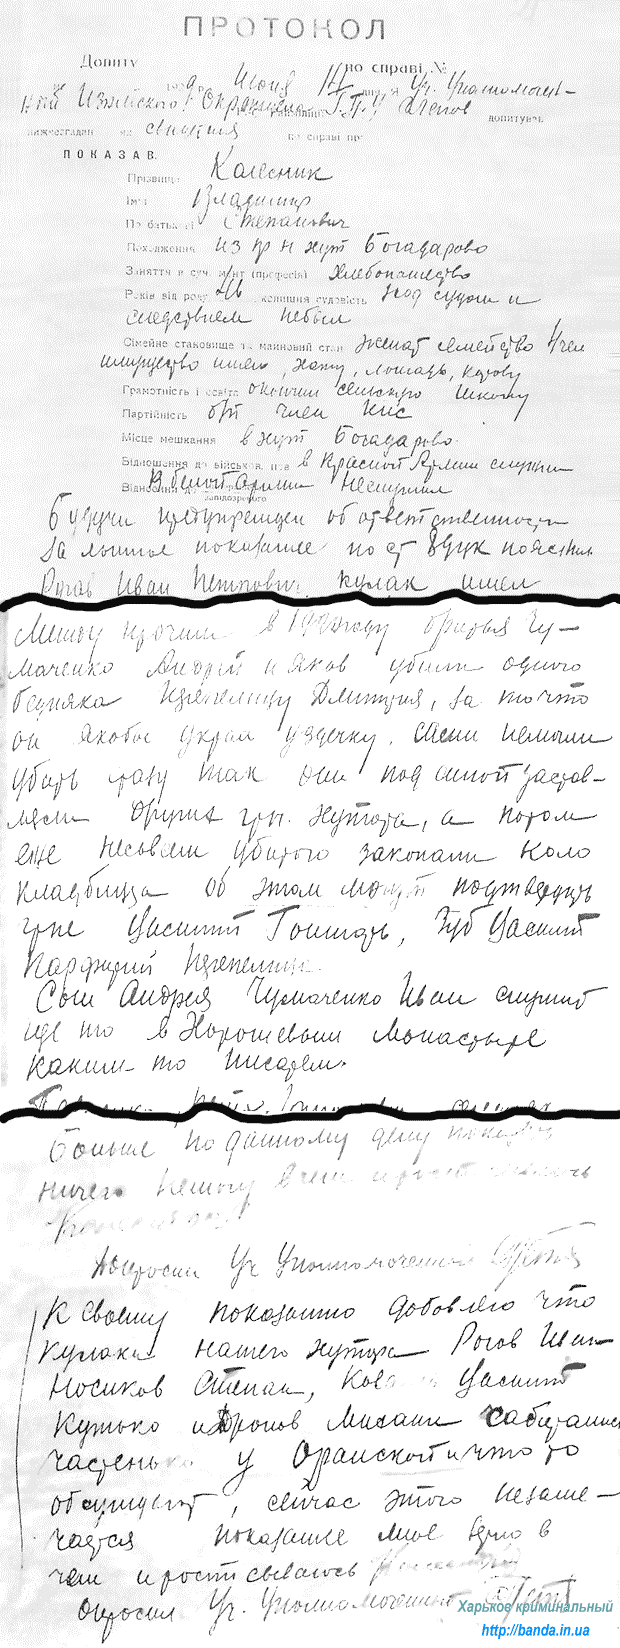 ПРОТОКОЛ
Допиту по справі №
192 9 р. Июня 14 дня я Уч. Уполномоч-
Изюмского Окротдела Г.П.У.
нижчезгадан як свидетеля по справі про допитував
ПОКАЗАВ
Прізвище Колесник
Ім'я Владимир
По батькові Степанович
Походження из кр н хут Богодарово
Заняття в суч. мент (професія) хлебопашество
Років від роду колишня судовість под судом и
следствием небыл
Сімейне становище та майновий стан женат семейство 4 чел
имущество имею, хату, лошадь, корову
Грамотність і освіта окончил сельскую школу
Партійність б/п член КНС
Місце мешкання в хут Богодарово
Відношення до військов. пов в Красной Армии служил
Відношення до В белой Армии неслужил
запідозреного
Будучи предупрежден об ответственности
за ложное показание по ст УК пояснил
Рогов Иван Петрович кулак имел
Между прочим в году братья Чу-
маченко Андрей и Яков убили одного
бедняка Перепелицу Дмитрия, за то что
он якобы украл уздечку. Сами немогли
убить сразу так они под силой застав-
ляли других гр. хутора, а потом
еще несовсем убитого закопали коло
кладбища об этом могут подтвердить
гр-не Василий Гонтарь, Зуб Василий
Парфирий Перепелица.
Сын Андрея Чумаченко Иван служит
где то в Хорошевом Монастыре
каким-то писарем.
Больше по данному делу показать
ничего немогу в чем и росписываюсь
Допросил Уч Уполномоченный
К своему показанию добовляю что
кулаки нашего хутора Рогов Иван
Носиков Степан, Василий
Кутько и Дропов Михаил собирались
частенько у Оранской и что то
обсуждают, сейчас этого незаме-
чается показание мое верно в
чем и росписываюсь
Опросил Уч. Уполномоченный
Харьков криминальный
http://banda.in.ua